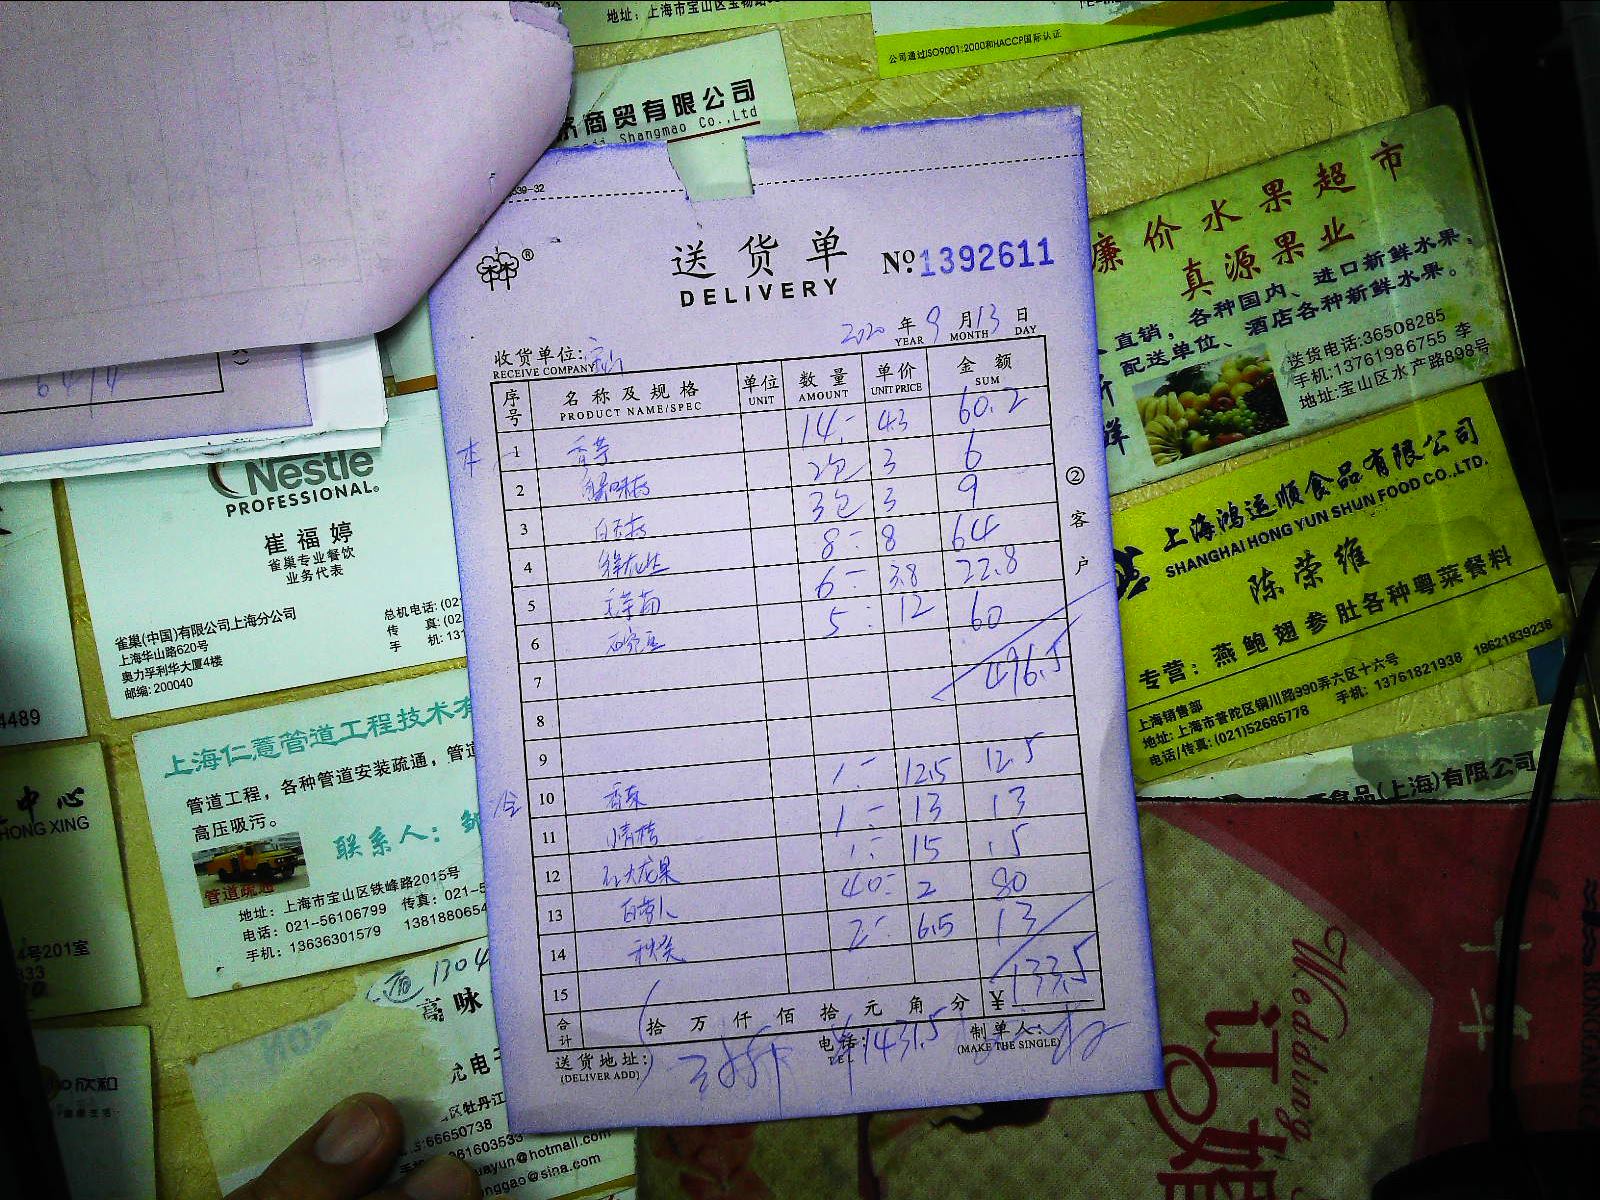 地址：上海市宝山区宝杨路
公司通过ISO9001:2000和HACCP国际认证
济商贸有限公司
Shangmao Co.,Ltd
339-32
送货单
DELIVERY
No. 1392611
2020 年 9 月 13 日
YEAR MONTH DAY
收货单位:
RECEIVE COMPANY
序号 名称及规格 单位 数量 单价 金额
PRODUCT NAME/SPEC UNIT AMOUNT UNIT PRICE SUM
1 香芋 14.- 4.3 60.2
2 蟹味菇 2包 3 6
3 白玉菇 3包 3 9
4 8.- 8 64
5 6.- 3.8 22.8
6 5.- 12 60
7 496.5
8
9
10 香菜 1.- 12.5 12.5
11 小青桔 1.- 13 13
12 红火龙果 1.- 15 15
13 白萝卜 40.- 2 80
14 秋葵 2.- 6.5 13
15
合计 拾 万 仟 佰 拾 元 角 分 ¥ 133.5
送货地址:
(DELIVER ADD)
电话:
TEL
1431.5
制单人:
(MAKE THE SINGLE)
②客户
廉价水果超市
真源果业
直销，各种国内、进口新鲜水果，
配送单位、酒店各种新鲜水果。
送货电话:36508285
手机:13761986755 李
地址:宝山区水产路898号
上海鸿运顺食品有限公司
SHANGHAI HONG YUN SHUN FOOD CO.,LTD.
陈荣维
专营：燕鲍翅参肚各种粤菜餐料
上海销售部
地址: 上海市普陀区铜川路990弄六区十六号
电话/传真: (021)52686778 手机: 13761821938 18621839238
食品(上海)有限公司
Nestle
PROFESSIONAL
崔福婷
雀巢专业餐饮
业务代表
雀巢(中国)有限公司上海分公司
上海华山路620号
奥力孚利华大厦4楼
邮编: 200040
总机电话: (02
传 真: (02
手 机: 13
4489
上海仁薏管道工程技术有
管道工程，各种管道安装疏通，管道
高压吸污。
联系人：
管道疏通
地址：上海市宝山区铁峰路2015号
电话：021-56106799 传真：021-5
手机：13636301579 1381880654
中心
HONG XING
4号201室
333
欣和
1304
高咏
允电子
区牡丹江
:66650738
手机
61603533
uayun@hotmail.com
nggao@sina.com
Wedding
订婚